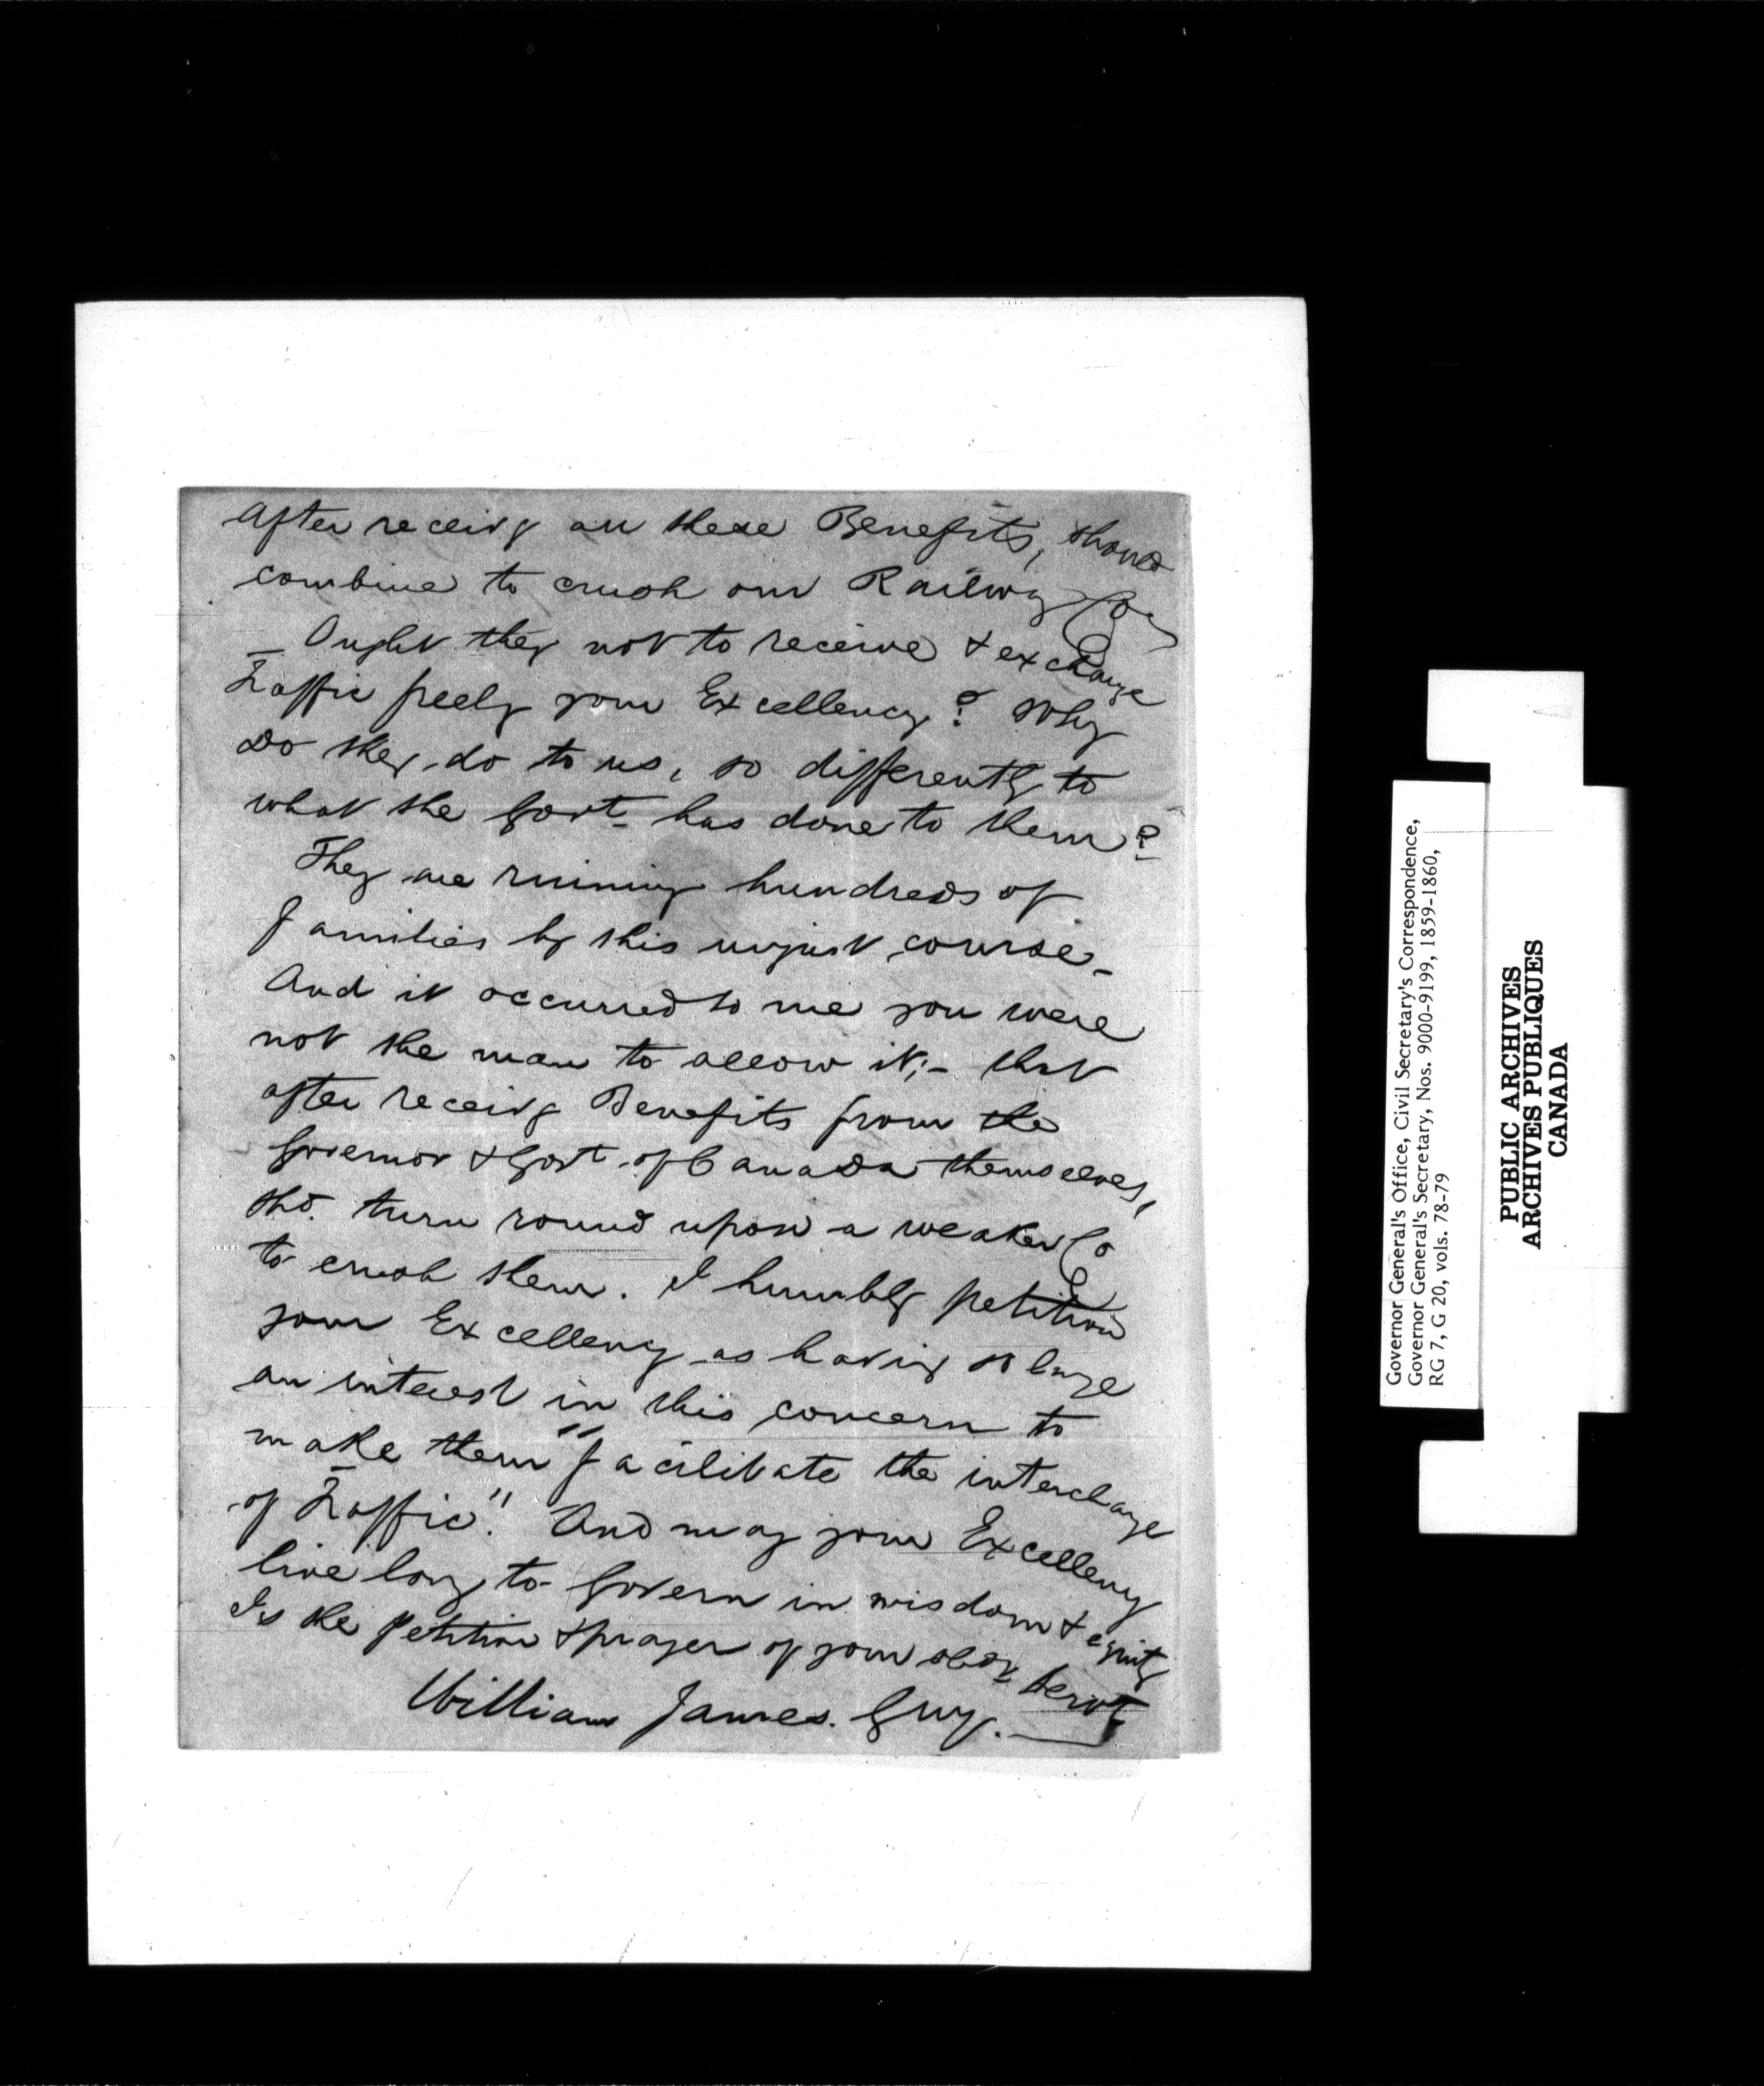 After receivg all these Benefits, should
combine to crush our Railway Coy
— Ought they not to receive & exchange
Traffic freely your Excellency? Why
Do they do to us, so differently to
what the Govt has done to them?
They are ruining hundreds of
families by this unjust course—
And it occurred to me you were
not the man to allow it;— that
after receivg Benefits from the
Governor & Govt of Canada themselves,
shd. turn round upon a weaker Co
to crush them. I humbly petition
your Excellency as having so large
an interest in this concern to
make them "facilitate the interchange
of Traffic." And may your Excellency
live long to Govern in wisdom & equity
Is the petition & prayer of your obdt Servt
William James. Guy.
Governor General's Office, Civil Secretary's Correspondence,
Governor General's Secretary, Nos. 9000-9199, 1859-1860,
RG 7, G 20, vols. 78-79
PUBLIC ARCHIVES
ARCHIVES PUBLIQUES
CANADA